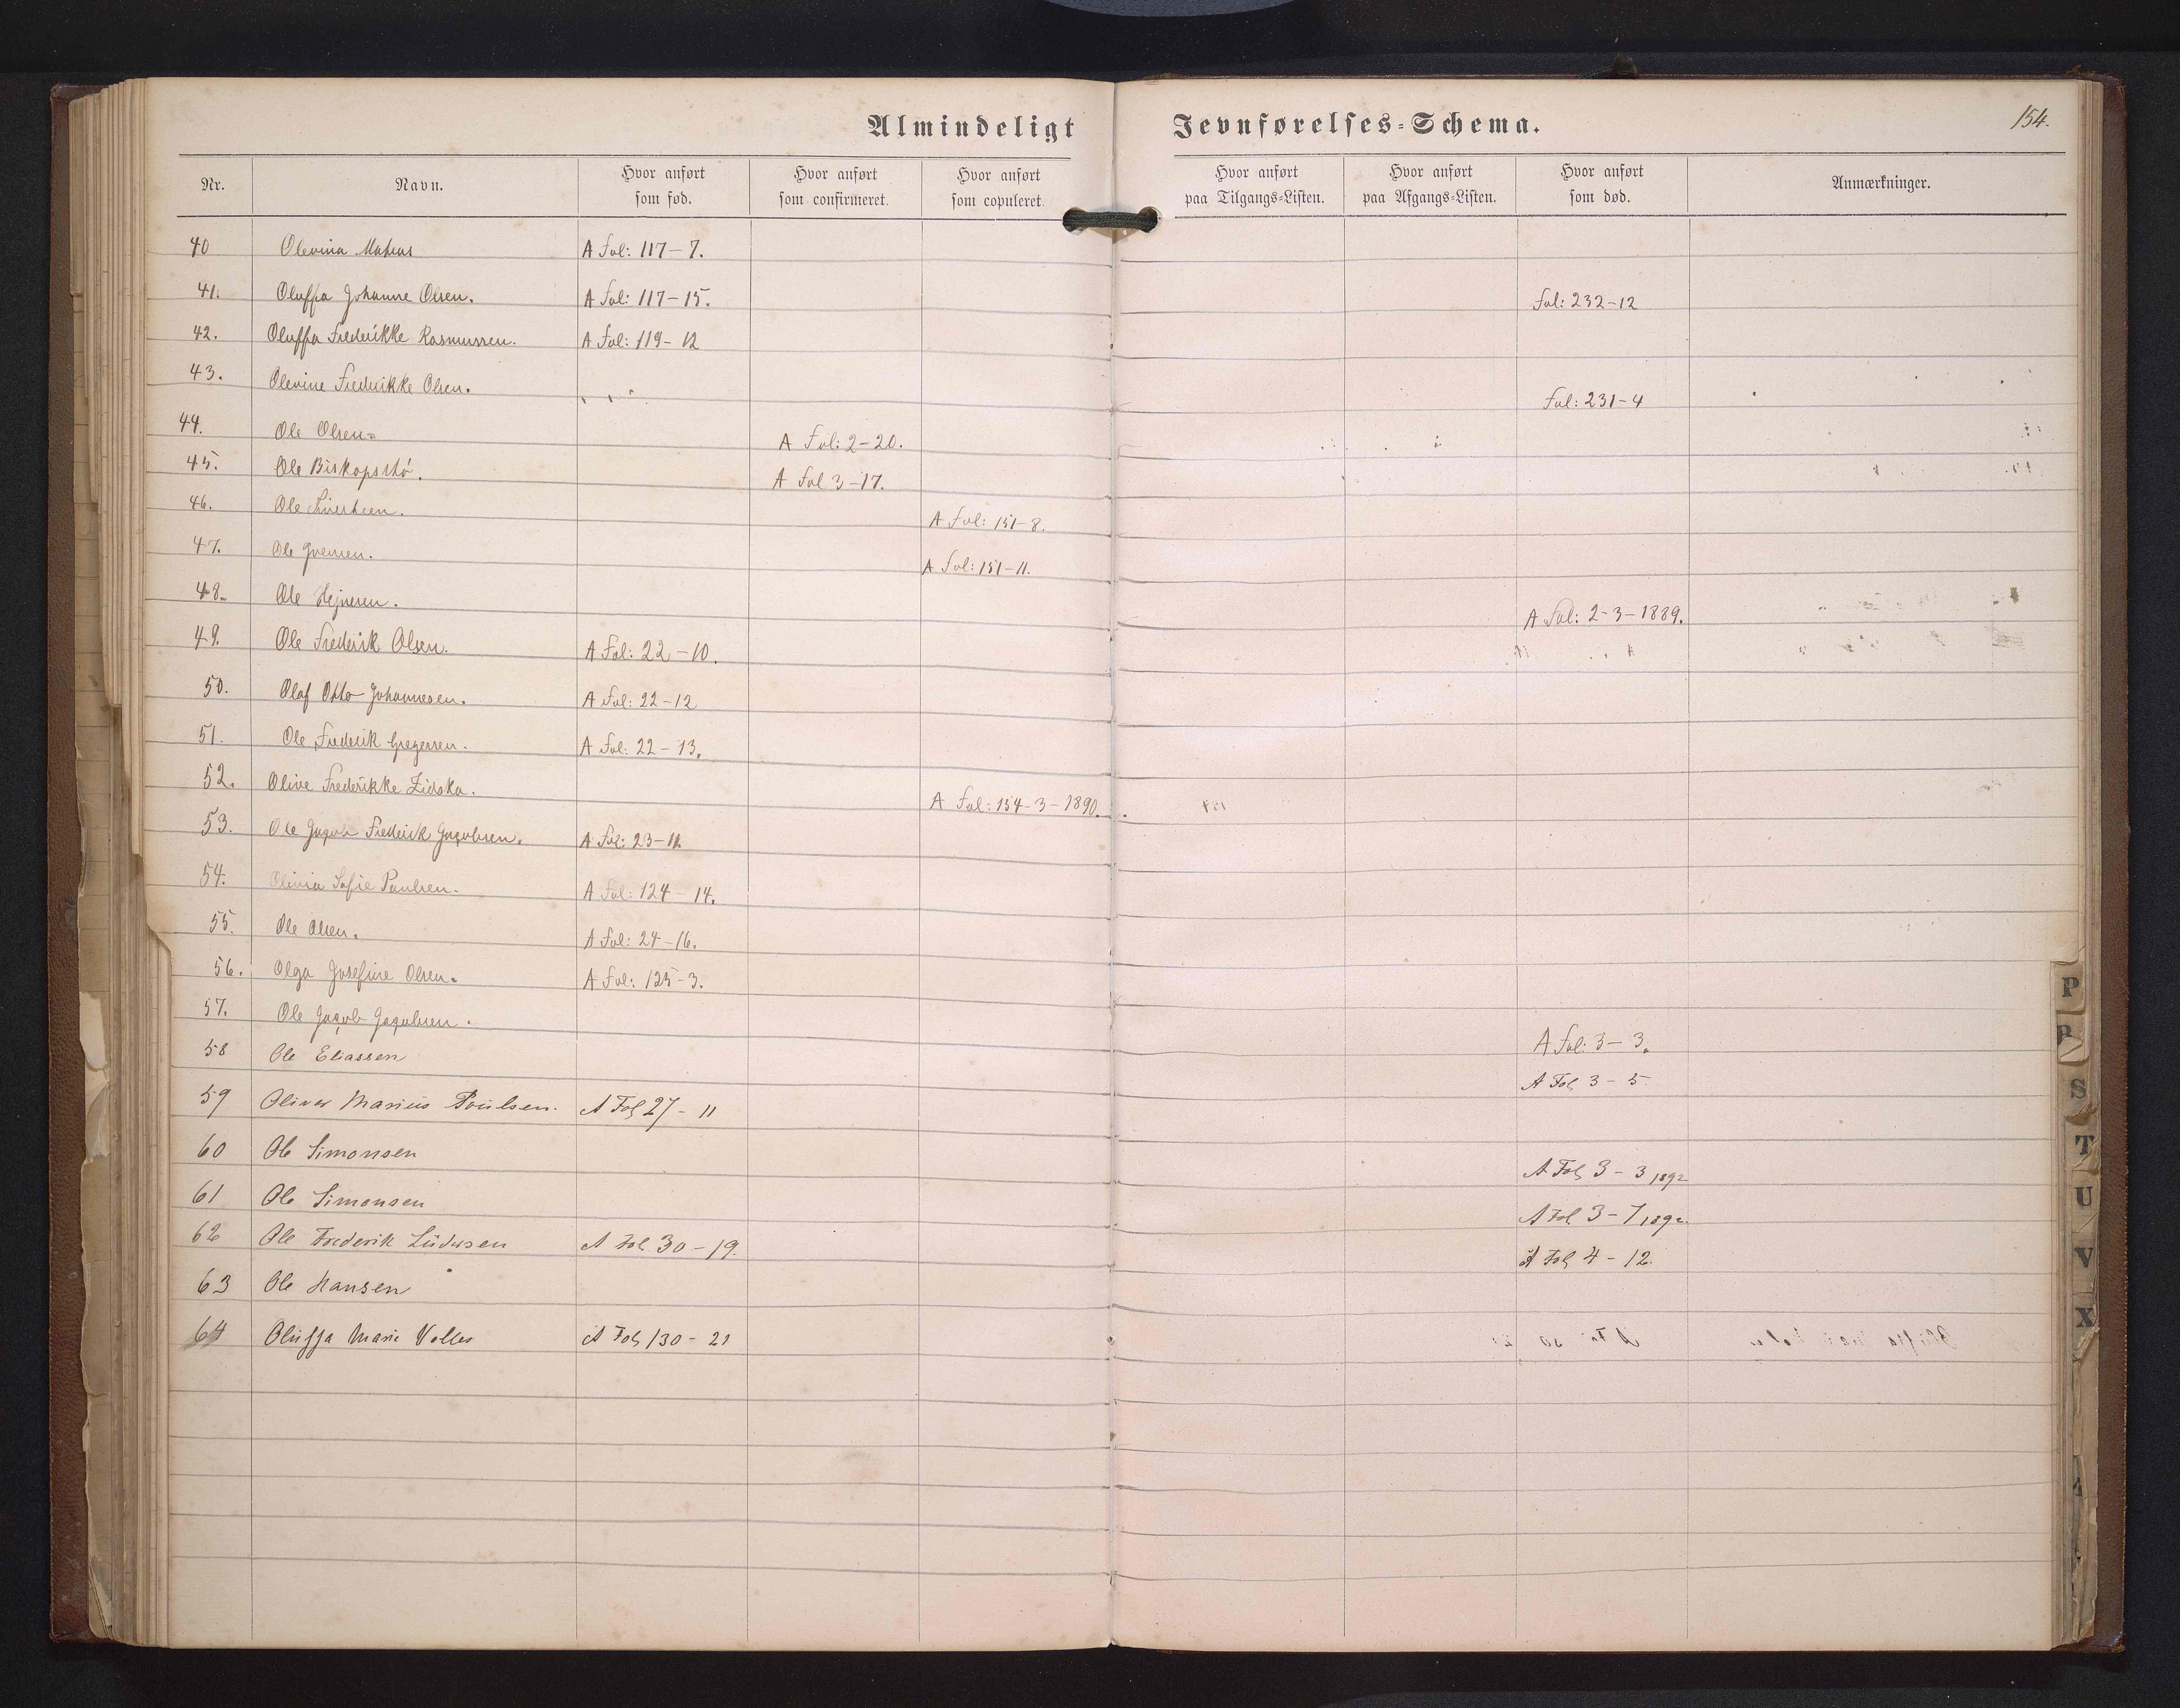 154.
Almindeligt Jevnførelses=Schema.
Nr. Navn. Hvor anført som fød. Hvor anført som confirmeret. Hvor anført som copuleret. Hvor anført paa Tilgangs=Listen. Hvor anført paa Afgangs=Listen. Hvor anført som død. Anmærkninger.
40 Olevina A Fol: 117-7.
41. Oluffa Johanne Olsen. A Fol: 117-15. Fol: 232-12
42. Oluffa Frederikke Rasmussen. A Fol: 119-12
43. Olevine Fredrikke Olsen. Fol: 231-4
44. Ole Olsen. A Fol: 2-20.
45. Ole Biskopstø. A Fol 3-17.
46. Ole A Fol: 151-8.
47. Ole A Fol: 151-11.
48. Ole Hejnesen. A Fol: 2-3-1889.
49. Ole Frederik Olsen. A Fol: 22-10.
50. Olaf Otto Johannesen. A Fol: 22-12
51. Ole Frederik Gregersen. A Fol: 22-13.
52. Olive Frederikke Zidska. A Fol: 154-3-1890.
53. Ole Jacob Frederik Jacobsen. A Fol: 23-11
54. Olivia Sofie Poulsen. A Fol: 124-14.
55. Ole Olsen. A Fol: 24-16.
56. Olga Josefine Olsen. A Fol: 125-3.
57. Ole Jacob Jacobsen. A Fol: 3-3.
58 Ole Eliassen A Fol 3-5
59 Oliver Marius Poulsen. A Fol 27-11
60 Ole Simonsen A Fol 3-3 1892
61 Ole Simonsen A Fol 3-7 1892.
62 Ole Frederik Lüdersen A Fol 30-19. A Fol 4-12.
63 Ole Hansen
64 Oluffa Marie Volles A Fol 130-21
P
R
S
T
U
V
X